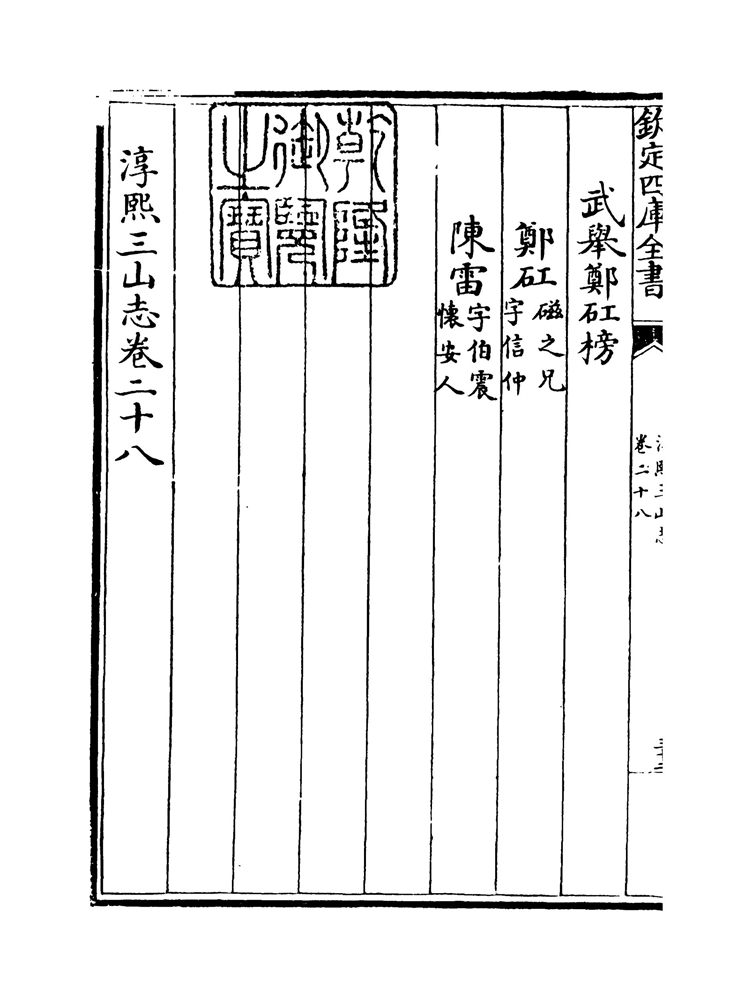 欽定四庫全書
淳熙三山志
卷二十八
武舉鄭矼榜
鄭矼磁之兄
字信仲
陳雷字伯震
懷安人
乾隆御覽之寶
淳熙三山志卷二十八